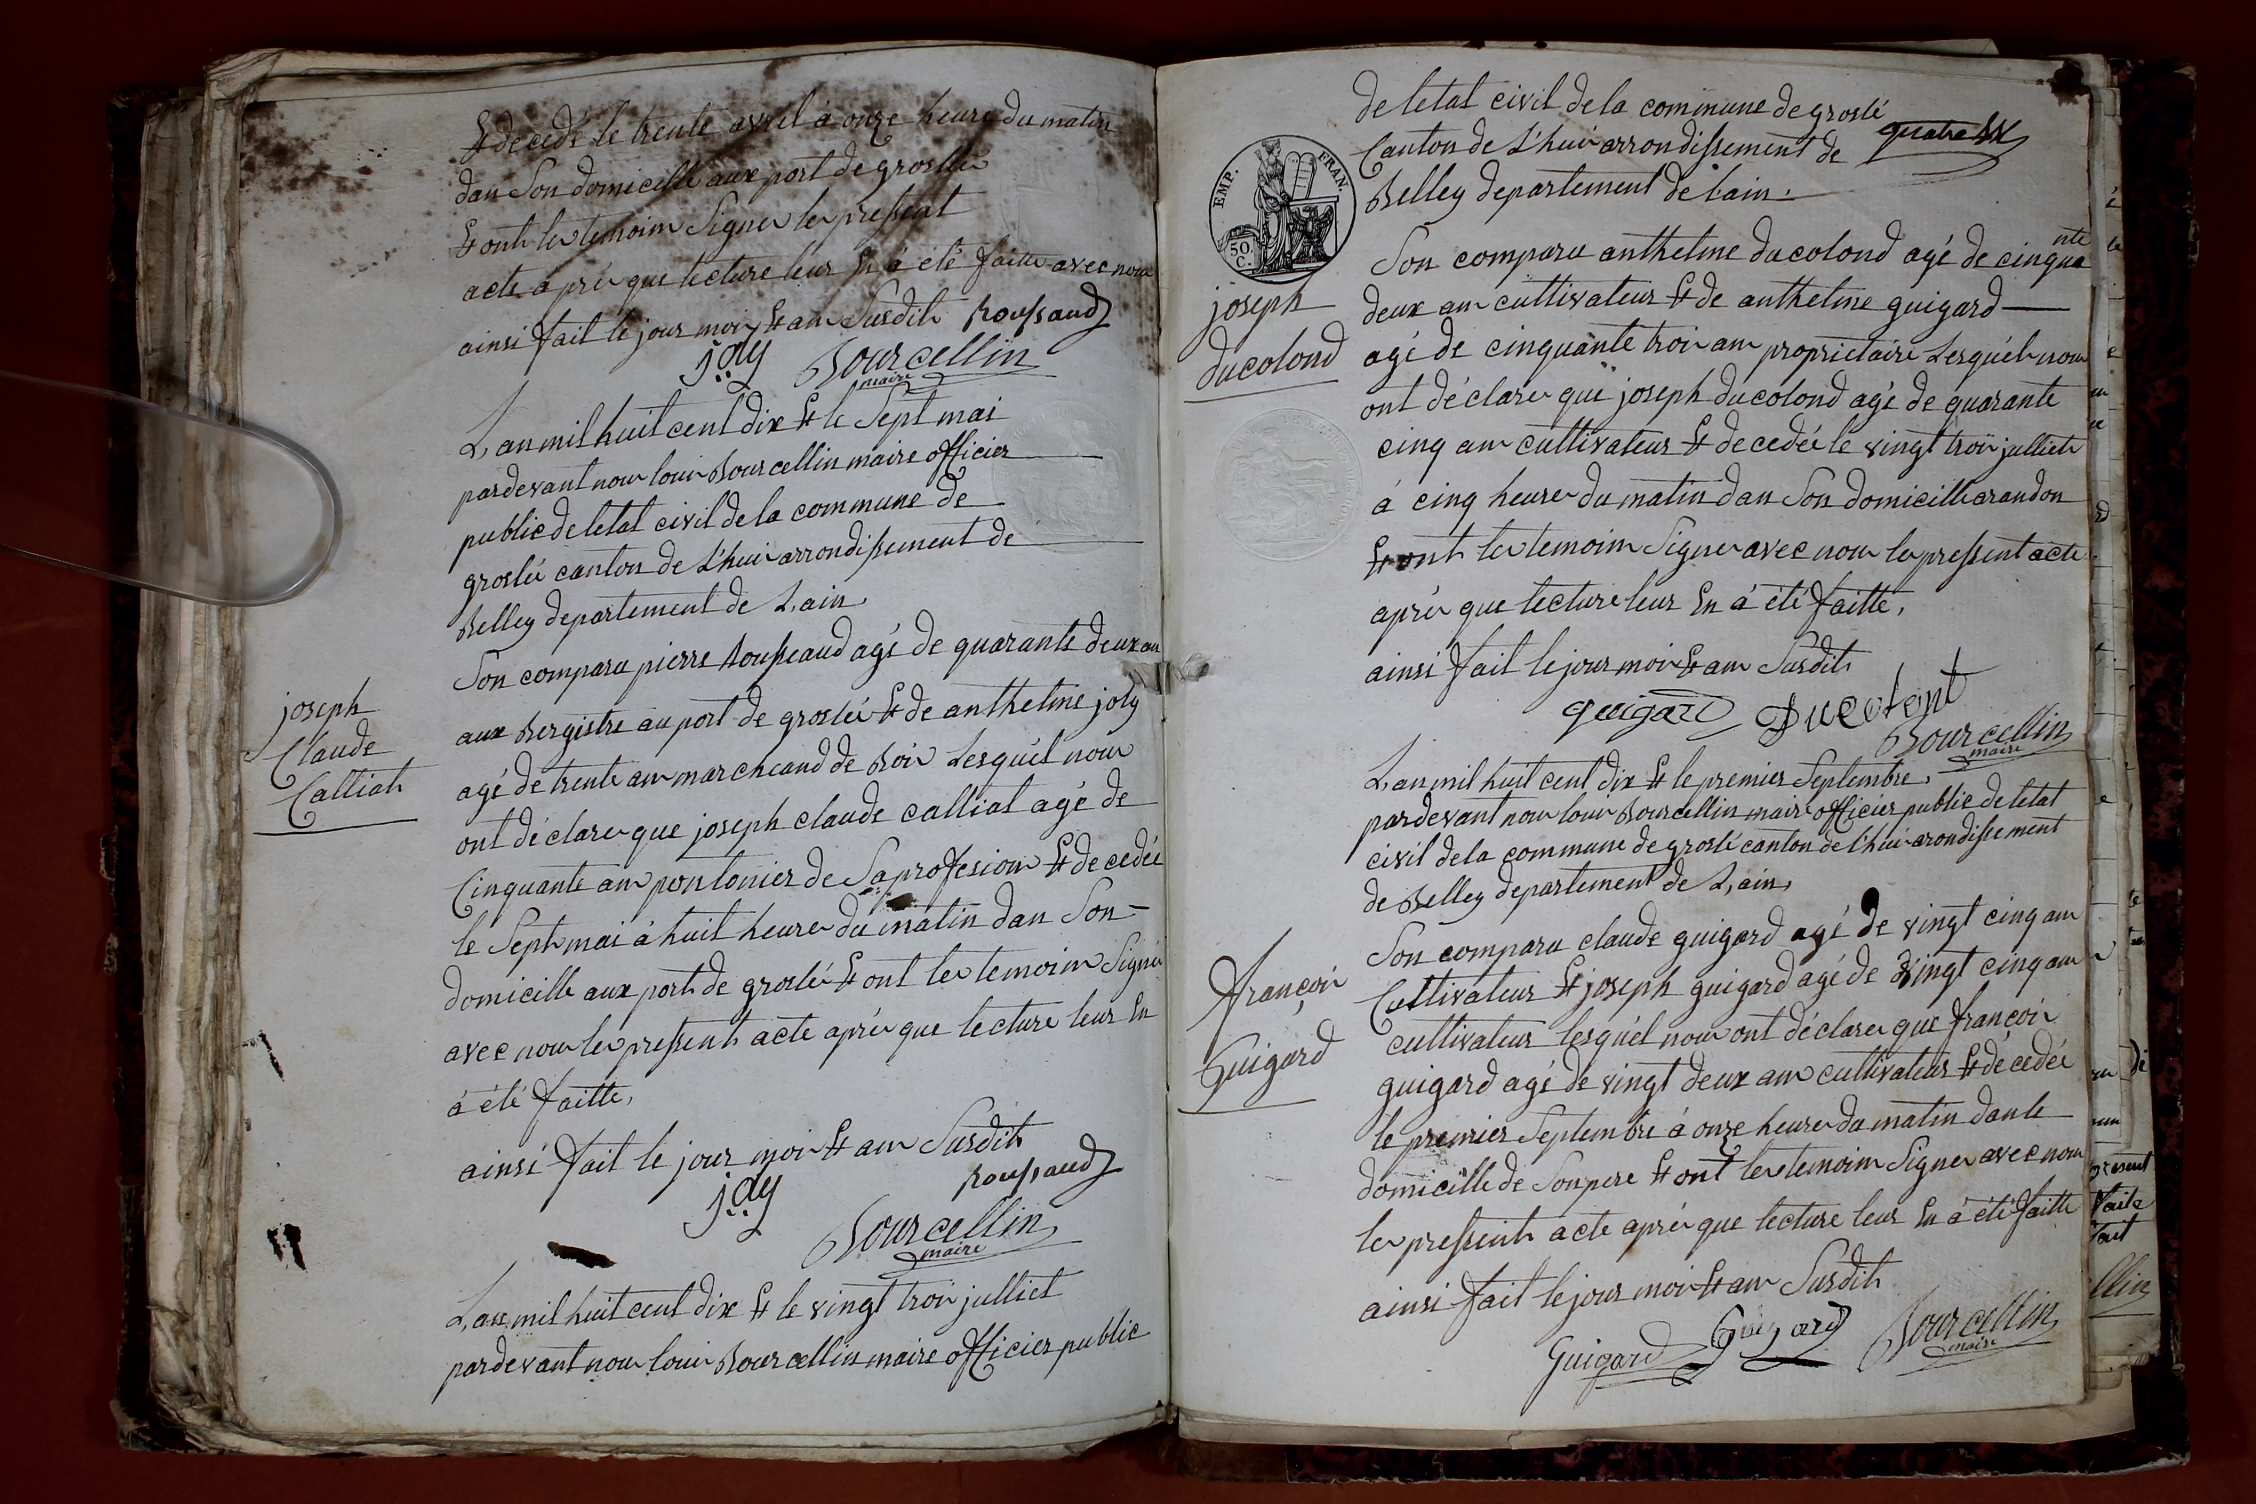 Et decedé le trente avril á onze heure du matin
dan Son domicille aux port de groslée
Et ont les temoins Signer les pressent
acte áprés que lecture leur En á été faitte avec nous
ainsi fait le jour mois Et ans Susdit Roussaud
joly Bourcellin
maire
L'an mil huit cent dix Et le Sept mai
pardevant nous louis Bourcellin maire officier
public de létat civil de la commune de
groslée canton de L'huis arrondissement de
Belley departement de L'ain
joseph
Claude
Calliat
Son comparu pierre Rousseaud agé de quarante deux an
aux Bergistre au port de groslée Et de anthelme joly
agé de trente ans marcheand de Bois Lesquél nous
ont déclarer que joseph claude calliat agé de
Cinquante ans pontonier de Sa profesion Et decedée
le Sept mai á huit heure du matin dan Son
domicille aux port de groslée Et ont les temoins Signer
avec nous les pressent acte aprés que lecture leur En
á été faitte,
ainsi fait le jour mois Et ans Susdit
Roussaud
joly
Bourcellin
maire
L'an mil huit cent dix Et le vingt trois julliet
pardevant nous louis Bourcellin maire officier public
de létat civil de la commune de groslé
quatre
Canton de L'huis arrondissement de
Belley departement de lain
EMP. FRAN.
50
C.
joseph
ducolond
Son comparu anthelme ducolond agé de cinqua
nte
deux ans cultivateur Et de anthelme guigard
agé de cinquante trois ans proprietaire Lesquél nous
ont déclarer que joseph ducolond agé de quarante
cinq ans cultivateur Et decedée le vingt trois julliet
á cinq heure du matin dan Son domicille arandon
Et ont les temoins Signer avec nous les pressent acte
aprés que lecture leur En á été faitte,
ainsi fait le jour mois Et ans Susdit
guigard Ducolont
Bourcellin
maire
L'an mil huit cent dix Et le premier Septembre,
pardevant nous louis Bourcellin maire officier public de létat
civil de la commune de groslé canton de L'huis arondissement
de Belley departement de L'ain,
françois
Guigard
Son comparu claude guigard agé de vingt cinq ans
Cultivateur Et joseph guigard agé de vingt cinq ans
cultivateur lesquél nous ont déclarer que françois
guigard agé de vingt deux ans cultivateur Et décedée
le premier Septembre á onze heure du matin dan le
domicille de Son pere Et ont les temoins Signer avec nous
les pressent acte aprés que lecture leur En á été faitte
ainsi fait le jour mois Et ans Susdit
Guigard Guigard Bourcellin
maire